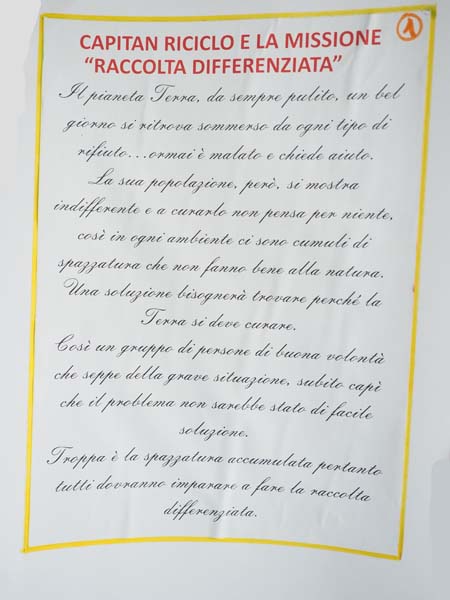 CAPITAN RICICLO E LA MISSIONE
“RACCOLTA DIFFERENZIATA”
Il pianeta Terra, da sempre pulito, un bel
giorno si ritrova sommerso da ogni tipo di
rifiuto...ormai è malato e chiede aiuto.
La sua popolazione, però, si mostra
indifferente e a curarlo non pensa per niente,
così in ogni ambiente ci sono cumuli di
spazzatura che non fanno bene alla natura.
Una soluzione bisognerà trovare perché la
Terra si deve curare.
Così un gruppo di persone di buona volontà
che seppe della grave situazione, subito capì
che il problema non sarebbe stato di facile
soluzione.
Troppa è la spazzatura accumulata pertanto
tutti dovranno imparare a fare la raccolta
differenziata.